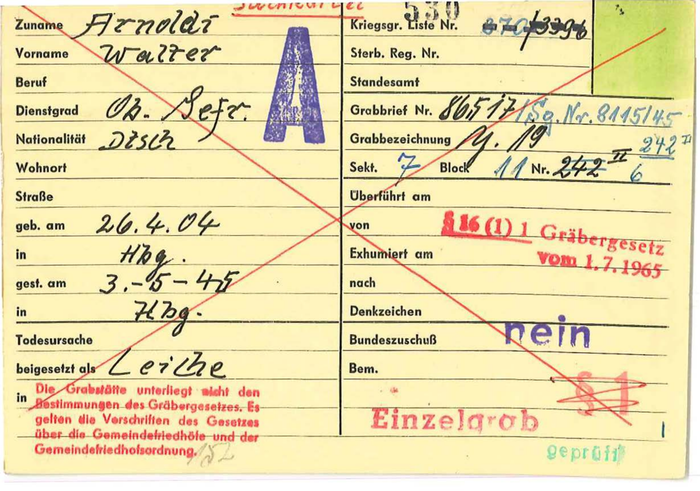 530
Zuname Arnoldi
Vorname Walter
Beruf
Dienstgrad Ob. Gefr.
Nationalität Dtsch
Wohnort
Straße
geb. am 26.4.04
in Hbg.
gest. am 3.-5-45
in Hbg.
Todesursache
beigesetzt als Leiche
in
Die Grabstätte unterliegt nicht den
Bestimmungen des Gräbergesetzes. Es
gelten die Vorschriften des Gesetzes
über die Gemeindefriedhöfe und der
Gemeindefriedhofsordnung.
152
A
Kriegsgr. Liste Nr.
Sterb. Reg. Nr.
Standesamt
Grabbrief Nr. 86517/Sg. Nr. 8115/45
Grabbezeichnung 19 242 II
Sekt. 7 Block 11 Nr. 242 II 6
Überführt am
von
§ 16 (1) 1 Gräbergesetz
vom 1.7.1965
Exhumiert am
nach
Denkzeichen
Bundeszuschuß nein
Bem.
§ 1
Einzelgrab
geprüft